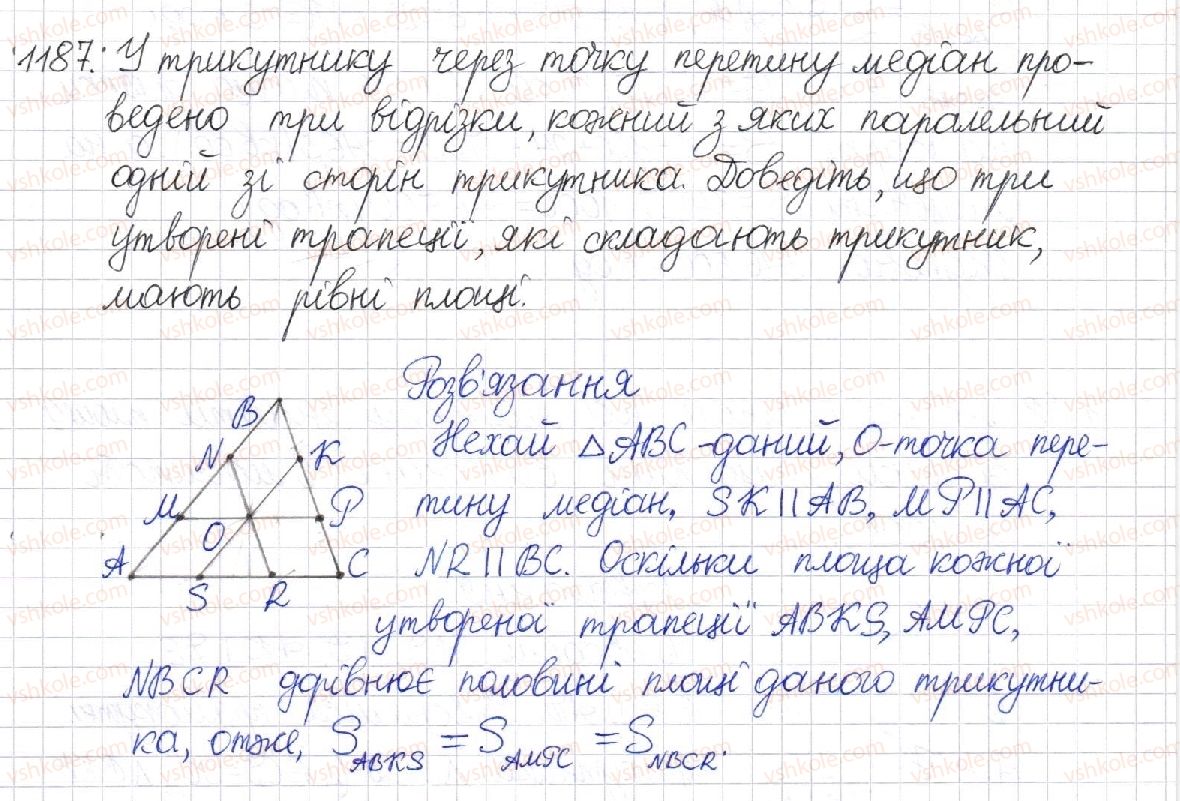 1187. У трикутнику через точку перетину медіан про-
ведено три відрізки, кожений з яких паралельний
одній зі сторін трикутника. Доведіть, що три
утворені трапеції, які складають трикутник,
мають рівні площі.
Розв'язання
B
N
K
M
O
P
A
S
R
C
Нехай △ABC - даний, O - точка пере-
тину медіан, SK || AB, MP || AC,
NR || BC. Оскільки площа кожної
утвореної трапеції ABKS, AMPC,
NBCR дорівнює половині площі даного трикутни-
ка, отже, S ABKS = S AMPC = S NBCR.